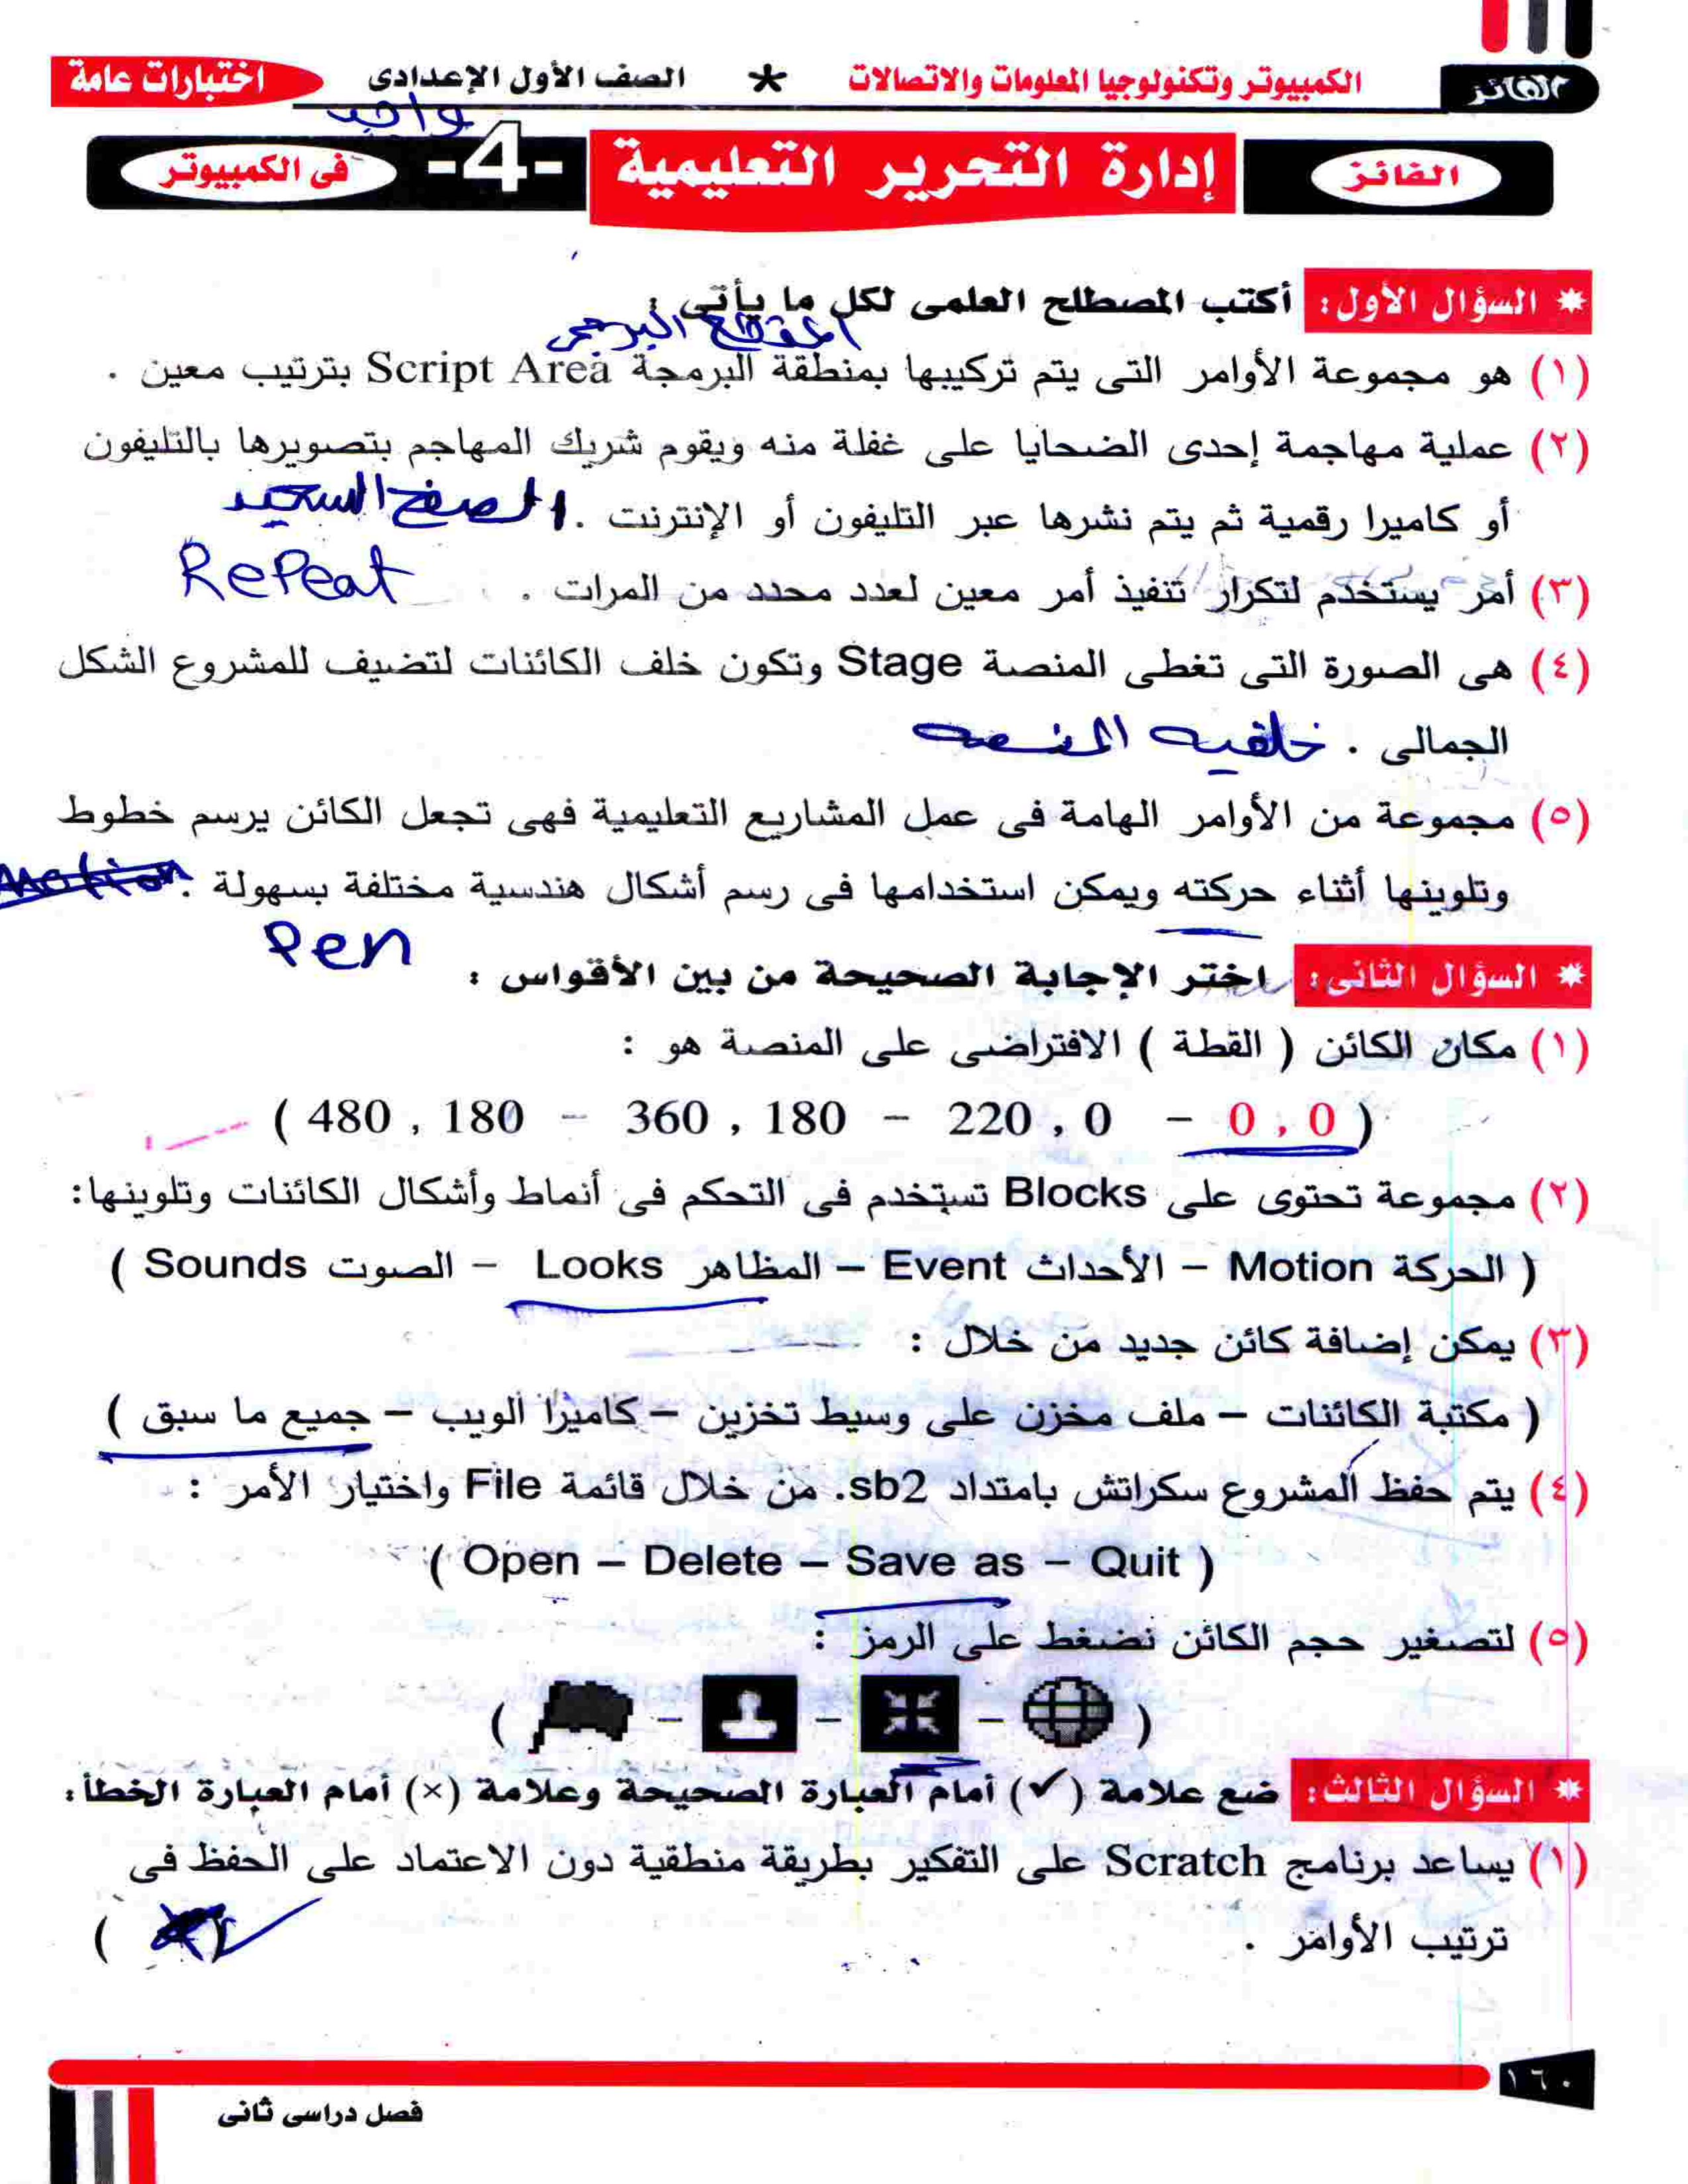 الفائز
الكمبيوتر وتكنولوجيا المعلومات والاتصالات * الصف الأول الإعدادى اختبارات عامة
واجب
الفائز إدارة التحرير التعليمية -4- فى الكمبيوتر
* السؤال الأول : أكتب المصطلح العلمى لكل ما يأتى :
المقطع البرمجى
(١) هو مجموعة الأوامر التى يتم تركيبها بمنطقة البرمجة Script Area بترتيب معين .
(٢) عملية مهاجمة إحدى الضحايا على غفلة منه ويقوم شريك المهاجم بتصويرها بالتليفون
أو كاميرا رقمية ثم يتم نشرها عبر التليفون أو الإنترنت . الصفع السعيد
(٣) أمر يستخدم لتكرار تنفيذ أمر معين لعدد محدد من المرات . Repeat
(٤) هى الصورة التى تغطى المنصة Stage وتكون خلف الكائنات لتضيف للمشروع الشكل
الجمالى . خلفيه المنصه
(٥) مجموعة من الأوامر الهامة فى عمل المشاريع التعليمية فهى تجعل الكائن يرسم خطوط
وتلوينها أثناء حركته ويمكن استخدامها فى رسم أشكال هندسية مختلفة بسهولة . Motion
Pen
* السؤال الثانى : اختر الإجابة الصحيحة من بين الأقواس :
(١) مكان الكائن ( القطة ) الافتراضى على المنصة هو :
( 480 , 180 – 360 , 180 – 220 , 0 – 0 , 0 )
(٢) مجموعة تحتوى على Blocks تستخدم فى التحكم فى أنماط وأشكال الكائنات وتلوينها :
( الحركة Motion – الأحداث Event – المظاهر Looks – الصوت Sounds )
(٣) يمكن إضافة كائن جديد من خلال :
( مكتبة الكائنات – ملف مخزن على وسيط تخزين – كاميرا الويب – جميع ما سبق )
(٤) يتم حفظ المشروع سكراتش بامتداد sb2. من خلال قائمة File واختيار الأمر :
( Open – Delete – Save as – Quit )
(٥) لتصغير حجم الكائن نضغط على الرمز :
( – – – )
* السؤال الثالث : ضع علامة (✓) أمام العبارة الصحيحة وعلامة (×) أمام العبارة الخطأ :
(١) يساعد برنامج Scratch على التفكير بطريقة منطقية دون الاعتماد على الحفظ فى
ترتيب الأوامر . ( ✓ )
١٦٠
فصل دراسى ثانى